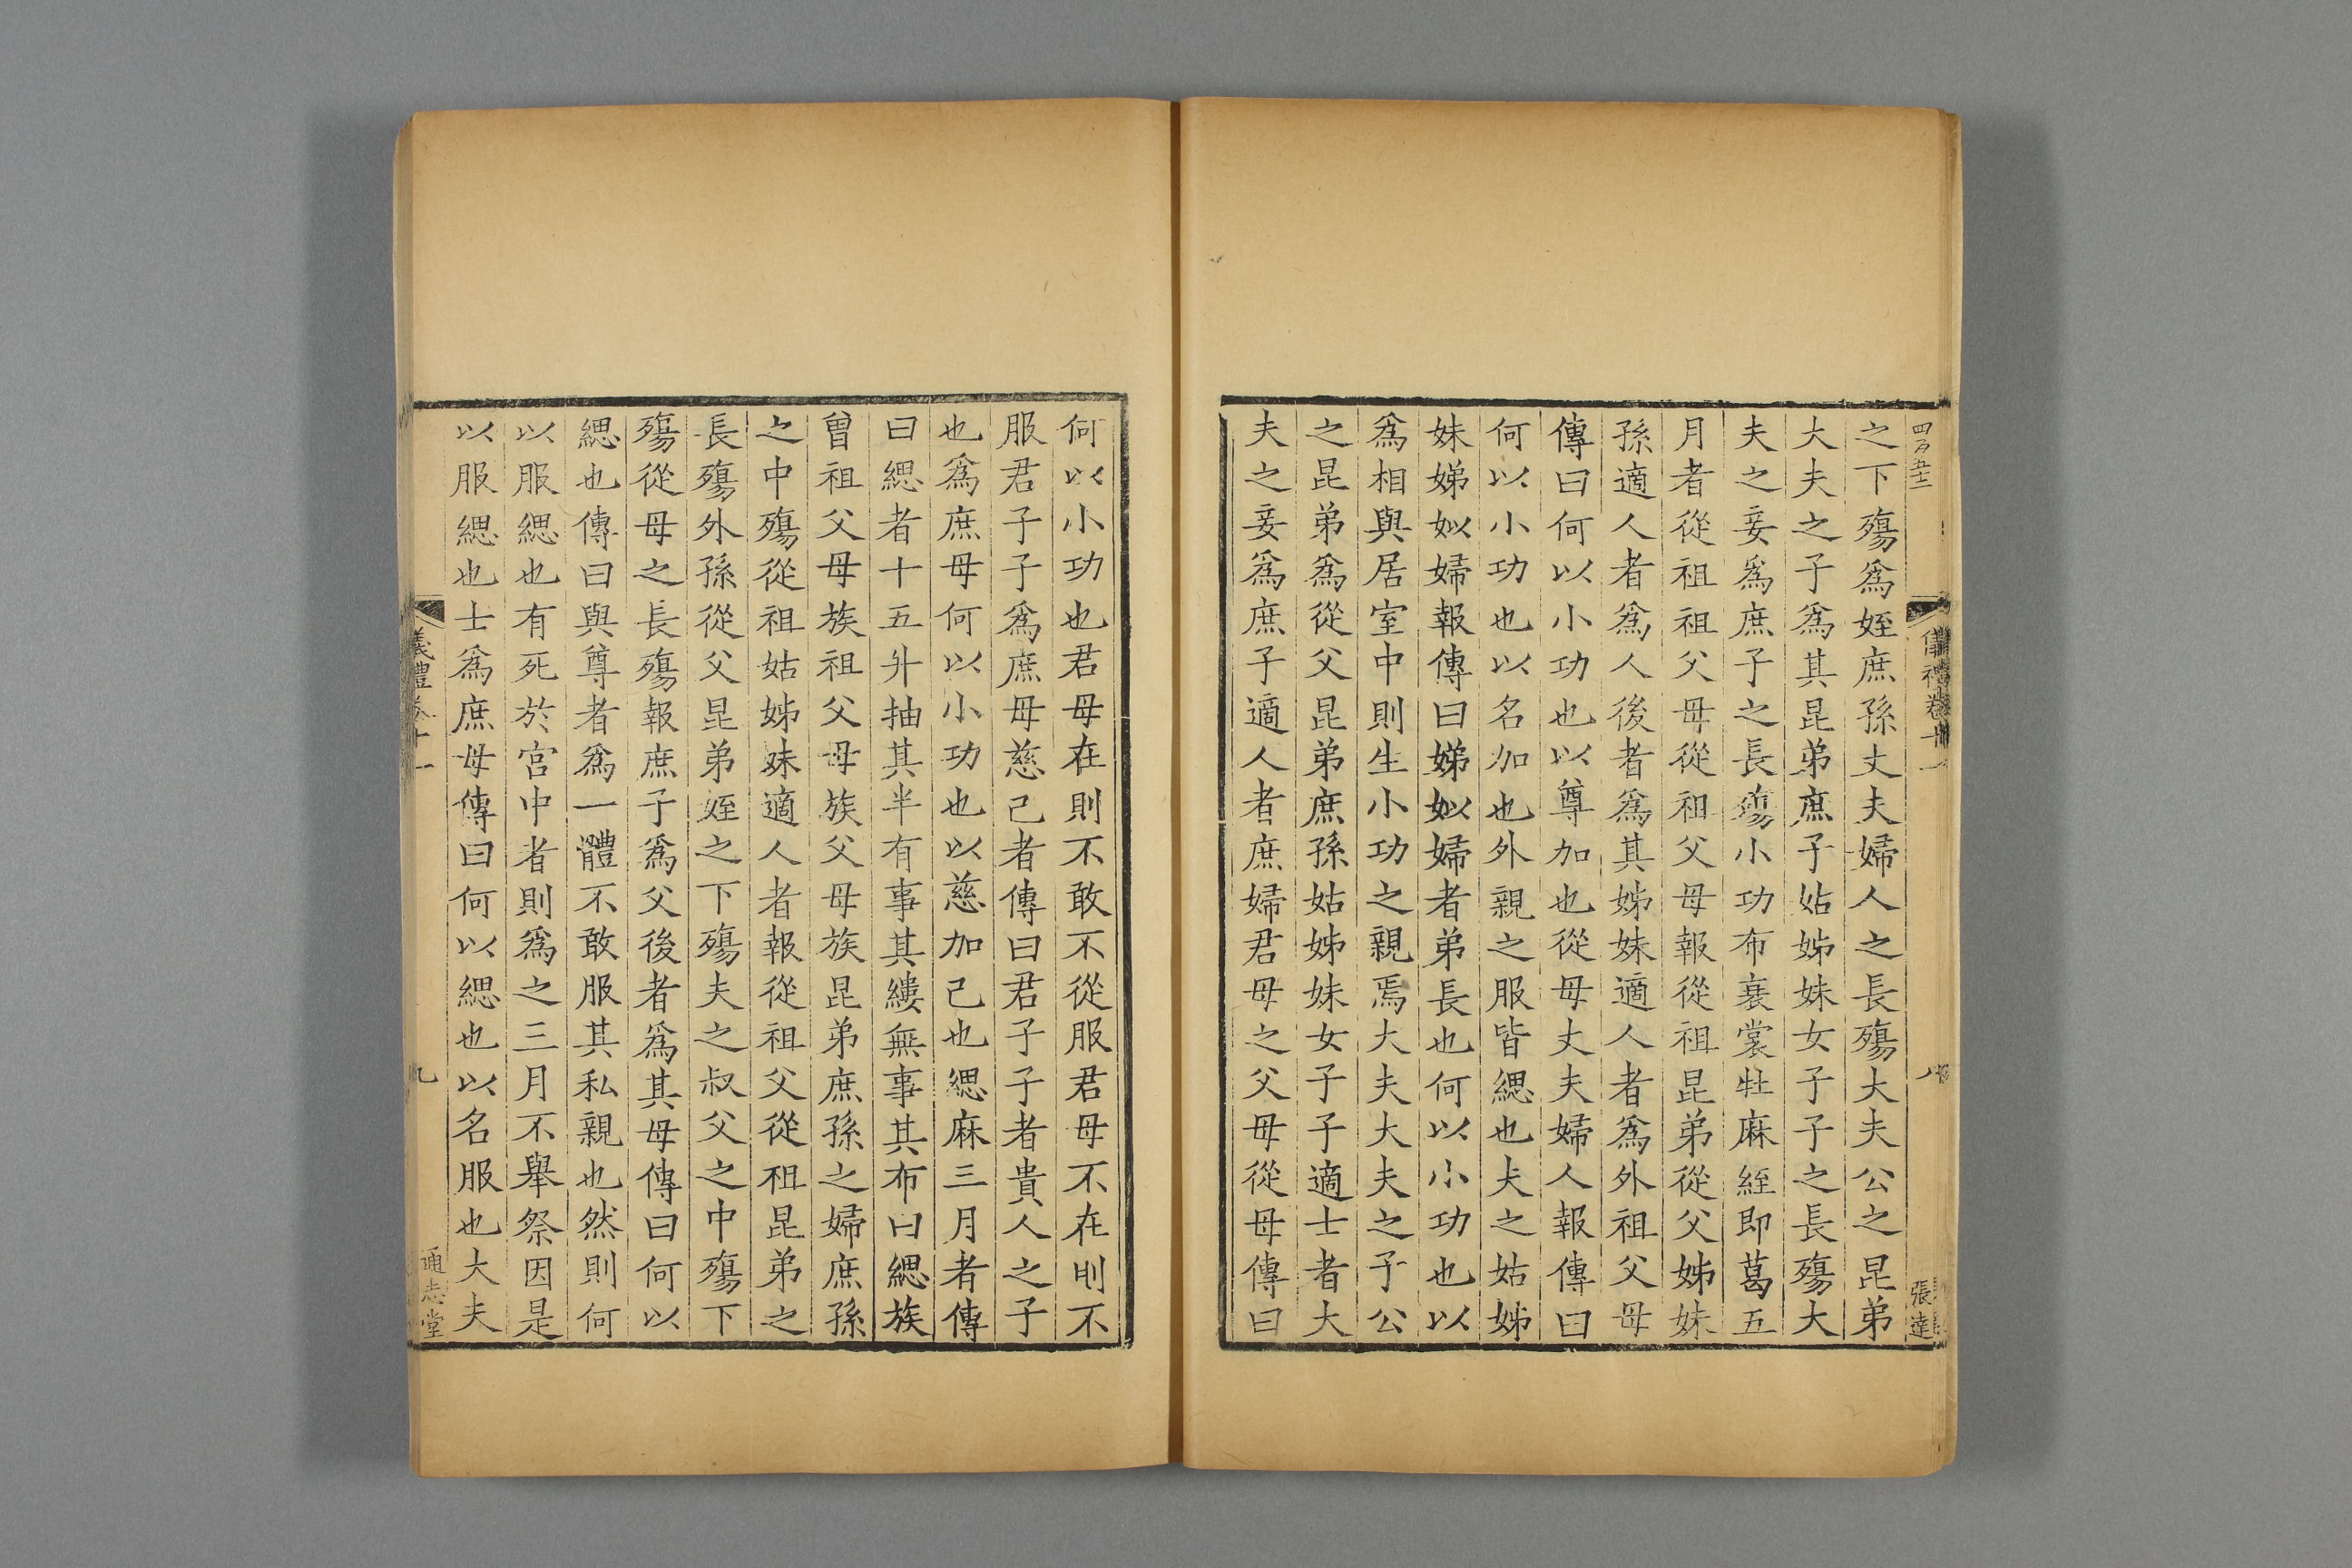 四百五十二
儀禮卷十一
八
張達
之下殤爲姪庶孫丈夫婦人之長殤大夫公之昆弟
大夫之子爲其昆弟庶子姑姊妹女子子之長殤大
夫之妾爲庶子之長殤小功布衰裳牡麻絰即葛五
月者從祖祖父母從祖父母報從祖昆弟從父姊妹
孫適人者爲人後者爲其姊妹適人者爲外祖父母
傳曰何以小功也以尊加也從母丈夫婦人報傳曰
何以小功也以名加也外親之服皆緦也夫之姑姊
妹娣姒婦報傳曰娣姒婦者弟長也何以小功也以
爲相與居室中則生小功之親焉大夫大夫之子公
之昆弟爲從父昆弟庶孫姑姊妹女子子適士者大
夫之妾爲庶子適人者庶婦君母之父母從母傳曰
何以小功也君母在則不敢不從服君母不在則不
服君子子爲庶母慈己者傳曰君子子者貴人之子
也爲庶母何以小功也以慈加己也緦麻三月者傳
曰緦者十五升抽其半有事其縷無事其布曰緦族
曾祖父母族祖父母族父母族昆弟庶孫之婦庶孫
之中殤從祖姑姊妹適人者報從祖父從祖昆弟之
長殤外孫從父昆弟姪之下殤夫之叔父之中殤下
殤從母之長殤報庶子爲父後者爲其母傳曰何以
緦也傳曰與尊者爲一體不敢服其私親也然則何
以服緦也有死於宮中者則爲之三月不舉祭因是
以服緦也士爲庶母傳曰何以緦也以名服也大夫
儀禮卷十一
九
通志堂